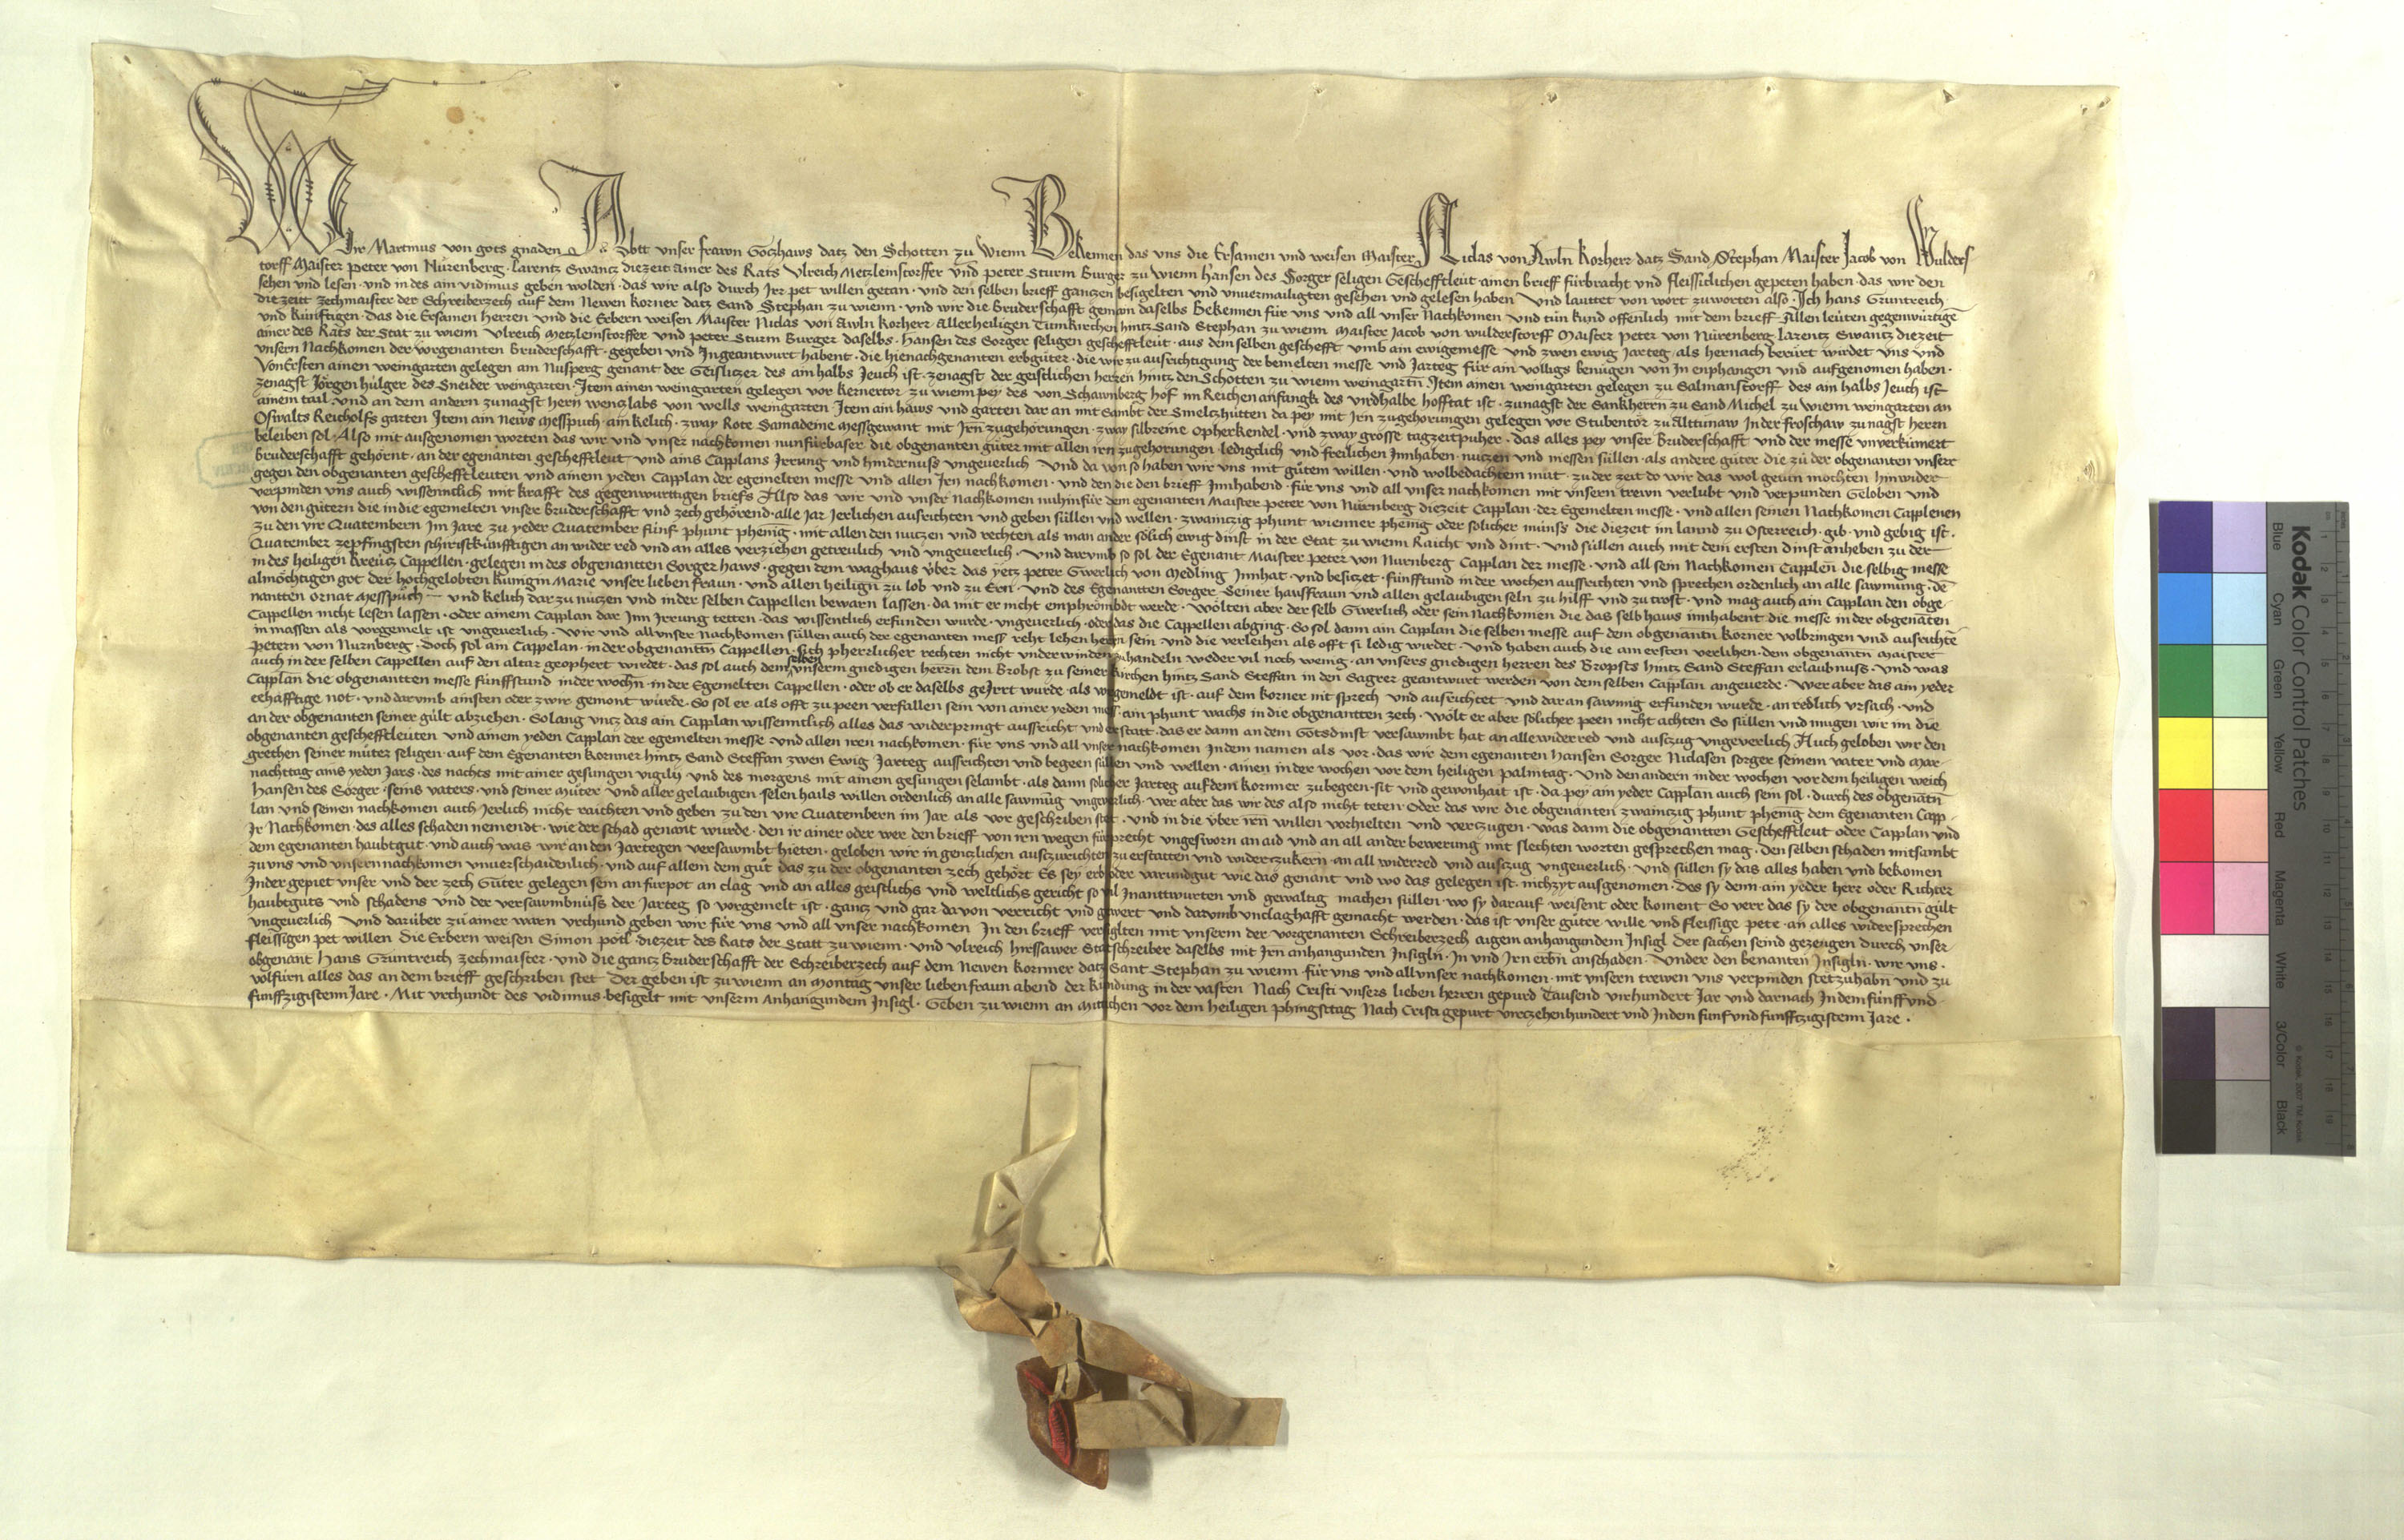 Wir Martinus von gots gnaden Abbtt unser frawn Goczhaws datz den Schotten zu Wienn Bekennen das uns die Ersamen und weisen Maister Niclas von Awln Korherr datz Sand Stephan Maister Jacob von Wulders
torff Maister Peter von Nürenberg Larentz Swantz diezeit ainer des Rats Ulreich Metzleinstorffer und Peter Sturm Burger zu Wienn Hansen des Sorger seligen Geschefftleut ainen brieff fürbracht und fleissiclichen gepeten haben das wir den
sehen und lesen und in des ain vidimus geben wolden das wir also durch Irr pet willen getan und den selben brieff ganczen besigelten und unuermailigten gesehen und gelesen haben Und lauttet von wort zuworten also Ich Hans Gruntreich
die zeitt zechmaister der Schreiberzech auf dem Newen korner datz Sand Stephan zu wienn und wir die Bruderschafft gemain daselbs Bekennen für uns und all unser Nachkomen und tun kund offenlich mit dem brieff Allen leuten gegenwürtigen
und künftigen das die Ersamen herren und die Erbern weisen Maister Niclas von Awln Korherr Allerheiligen Tumkirchen hintz Sand Stephan zu wienn Maister Jacob von wulderstorff Maister Peter von Nürenberg Larentz Swantz diezeit
ainer des Rats der Stat zu wienn Ulreich Metzleinstorffer und Peter Sturm Burger daselbs Hansen des Sorger seligen geschefftleut aus dem selben geschefft umb ain ewigemesse und zwen ewig Jarteg als hernach berürt wirdet uns und
unsern Nachkomen der vorgenanten Bruderschafft gegeben und Ingeantwurt habent die hienachgenanten erbgüter die wir zu ausrichtigung der bemelten messe und Jarteg für ain volligs benügen von In enphangen und aufgenomen haben
Von Ersten ainen weingarten gelegen am Nusperg genant der Geisliczer des ain halbs Jeuch ist zenagst der geistlichen herren hintz den Schotten zu wienn weingartn Item ainen weingarten gelegen zu Salmanstorff des ain halbs Jeuch ist
zenagst Jorgen hülger des Sneider weingarten Item ainen weingarten gelegen vor kernertor zu wienn pey des von Schawnberg hof im Reichen anfangk des virdhalbe hofftat ist zunagst der Sankherrn zu Sand Michel zu wienn weingarten an
ainem tail und an dem andern zunagst hern wenczlabs von wells weingarten Item ain haws und garten dar an mit sambt der Smelczhütten da pey mit Irn zugehorungen gelegen vor Stubentor zu Alttunaw In der froschaw zu nagst herrn
Oswalts Reicholfs garten Item ain News Messpuch ain kelich zway Rote Samadeine Messgewant mit Irn zugehörungen zway silbreine Opherkendel und zway grosse tagzeitpuher das alles pey unser Bruderschafft und der messe unuerkümert
beleiben sol Also mit ausgenomen worten das wir und unser nachkomen nunfürbaser die obgenanten güter mit allen irn zugehorungen ledigclich und freilichen Innhaben nutzen und niessen süllen als andere güter die zu der obgenanten unserr
Bruderschafft gehörnt an der egenanten geschefftleut und ains Capplans Irrung und hindernuss ungeuerlich Und da von so haben wir uns mit gütem willen und wolbedachtem mut zu der zeit do wir das wol getun mochten hinwider
gegen den obgenanten geschefftleuten und ainem yeden Capplan der egemelten messe und allen Irn nachkomen und den die den brieff Innhabend für uns und all unser nachkomen mit unsern trewn verlubt und verpunden Geloben und
verpinden uns auch wissenntlich mit krafft des gegenwurttigen briefs Also das wir und unser Nachkomen nuhinfür dem egenanten Maister Peter von Nürnberg diezeit Capplan der Egemelten messe und allen seinen Nachkomen Capplenen
von den gütern die in die egemelten unser Bruderschafft und zech gehörend alle Jar Jerlichen ausrichten und geben süllen und wellen zwainczig phunt wienner phenig oder solicher münss die diezeit im lannd zu Osterreich gib und gebig ist
zu den vir Quatembern Im Jare zu yeder Quatember fünf phunt phenig mit allen den nutzen und rechten als man ander solich ewig dinst in der Stat zu wienn Raicht und dint Und süllen auch mit dem ersten dinst anheben zu der
Quatember zepfingsten schiristkünfftigen an wider red und an alles verziehen getreulich und ungeuerlich Und darumb so sol der Egenant Maister Peter von Nurnberg Capplan der messe und all sein Nachkomen Capplen die selbig messe
in des heiligen kreutz Cappellen gelegen in des obgenantten Sorger haws gegen dem waghaus über das yetz Peter Gwerlich von Medling Innhat und besitzet fünfftund in der wochen ausrichten und sprechen ordenlich an alle sawmung de
almöchtigen got der hochgelobten kunigin Marie unser lieben fraun und allen heilign zu lob und zu Ern und des Egenantten Sorger Seiner hawsfraun und allen gelaubigen seln zu hilff und zu trost und mag auch ain Capplan den obge
nantten ornat Messpuch und kelich dar zu nutzen und in der selben Cappellen bewarn lassen da mit er nicht emphrömbdt werde Wolten aber der selb Gwerlich oder sein Nachkomen die das selb haws innhabent die messe in der obgenaten
Cappellen nicht lesen lassen oder ainem Capplan dar Inn Irrung tetten das wissentlich erfunden wurde ungeuerlich oder das die Cappellen abging So sol dann ain Capplan die selben messe auf dem obgenantn korner volbringen und ausrichte
in massen als vorgemelt ist ungeuerlich Wir und all unser nachkomen süllen auch der egenanten mess reht lehen herrn sein und die verleihen als offt si ledig wirdet Und haben auch die am ersten verlihen dem obgenantn Maister
Petern von Nurnberg Doch sol ain Cappelan in der obgenantn Cappellen sich pherrlicher rechten nicht underwinden zuhandeln weder vil noch wenig an unsers gnedigen herren des Bropsts hintz Sand Steffan erlaubnuss Und was
auch in der selben Cappellen auf den altar geophert wirdet das sol auch dem selben unserm gnedigen herrn dem Brobst zu seiner kirchen hintz Sand Steffan in den Sagrer geantwurt werden von dem selben Capplan angeuerde Wer aber das ain yeder
Capplan die obgenantten messe fünffstund in der wochn in der Egemelten Cappellen oder ob er daselbs geIrrt wurde als vorgemeldt ist auf dem korner nit sprech und ausrichtet und dar an sawmig erfunden wurde an redlich ursach und
eehafftige not und darumb ainsten oder zwir gemont wurde So sol er als offt zu peen verfallen sein von ainer yeden mess ain phunt wachs in die obgenantten zech wolt er aber solicher peen nicht achten So süllen und mugen wir im die
an der obgenanten seiner gült abziehen Solang untz das ain Capplan wissenntlich alles das widerpringt ausricht und erstatt das er dann an dem Gotsdinst versawmbt hat an alle wider red und auszug ungeverlich Auch geloben wir den
obgenanten geschefftleuten und ainem yeden Capplan der egemelten messe und allen iren nachkomen für uns und all unser nachkomen Indem namen als vor das wir dem egenanten Hansen Sorger Niclasen sorger seinem vater und Mar
grethen seiner muter seligen auf dem Egenanten kornner hintz Sand Steffan zwen Ewig Jarteg ausrichten und begeen süllen und wellen ainen in der wochen vor dem heiligen palmtag Und den andern in der wochen vor dem heiligen weich
nachttag ains yeden Jars des nachts mit ainer gesungen vigilij und des morgens mit ainem gesungen selambt als dann solicher Jarteg auf dem kornner zubegeen sit und gewonhait ist da pey ain yeder Capplan auch sein sol durch des obgenatn
Hansen des Sorger seins vaters und seiner müter und aller gelaubigen selen hails willen ordenlich an alle sawmüg ungeverlich wer aber das wir des also nicht teten Oder das wir die obgenanten zwainczig phunt phenig dem Egenanten Capp
lan und seinen nachkomen auch Jerlich nicht raichten und geben zu den vir Quatembern im Jar als vor geschriben stet und in die über irn willen vorhielten und verczugen was dann die obgenantten Geschefftleut oder Capplan und
Ir Nachkomen des alles schaden nemendt wie der schad genant wurde den ir ainer oder wer den brieff von irn wegen fürprecht ungesworn an aid und an all ander bewerung mit slechten worten gesprechen mag den selben schaden mitsambt
dem egenanten haubtgut und auch was wir an den Jartegen versawmbt hieten geloben wir in genczlichen ausczurichten zu erstatten und widerczukern an all widerred und auszug ungeuerlich Und süllen sy das alles haben und bekomen
zu uns und unsern nachkomen unuerschaidenlich und auf allem dem gut das zu der obgenanten zech gehort Es sey erb oder varundgut wie das genant und wo das gelegen ist nichzyt ausgenomen Des sy denn ain yeder herr oder Richter
Inder gepiet unser und der zech Güter gelegen sein an fürpot an clag und an alles geistlichs und weltlichs gericht so vil Inanttwurten und gewaltig machen süllen wo sy darauf weisent oder koment So verr das sy der obgenantn gült
haubtguts und schadens und der versawmbnüss der Jarteg so vorgemelt ist gantz und gar davon verricht und gewert und darumb unclaghafft gemacht werden das ist unser güter wille und fleissige pete an alles widersprechen
ungeuerlich Und darüber zu ainer warn urchund geben wir für uns und all unser nachkomen In den brieff versiglten mit unserm der vorgenanten Schreiberzech aigem anhangundem Insigl Der sachen seind gezeugen durch unser
fleissigen pet willen Die Erbern weisen Simon pötl diezeit des Rats der Statt zu wienn und Ulreich Hirssawer Statschreiber daselbs mit Irn anhangunden Insigln In und Irn erbn anschaden Under den benanten Insigln wir uns
obgenant Hans Gruntreich zechmaister und die gantz Bruderschafft der Schreiberzech auf dem Newen kornner datz Sant Stephan zu wienn für uns und all unser nachkomen mit unsern trewen uns verpinden stetzuhabn und zu
volfürn alles das an dem brieff geschriben stet Der geben ist zu wienn an Montag unser lieben fraun abend der kündung in der vasten Nach Cristi unsers lieben herren gepurd Tausend virhundert Jar und darnach Indem fünff und
funffzigistenn Jare Mit urchundt des vidimus besigelt mit unserm Anhangundem Insigl Geben zu wienn an Mittichen vor dem heiligen phingsttag Nach Cristi gepurt virczehenhundert und Indem funf und funfftzigistenn Jare
Kodak Color Control Patches
Blue Cyan Green Yellow Red Magenta White 3/Color Black
© Kodak, 2007 TM: Kodak